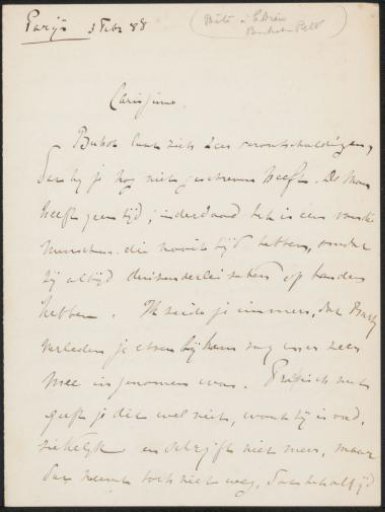 Parijs 3 Febr 88
Carissimo.
Buhot laat zich zeer verontschuldigen,
dat hij je nog niet geschreven heeft. De man
heeft geen tijd; inderdaad het is een van de
menschen die nooit tijd hebben, omdat
zij altijd duizenderlei zaken op handen
hebben. Ik zeide je immers, dat Burty
verleden je etsen bij hem zag en er zeer
mee ingenomen was. Critisch
geeft je dit wel niets, want hij is oud,
ziekelijk en schrijft niet meer, maar
dat neemt toch niet weg, dat